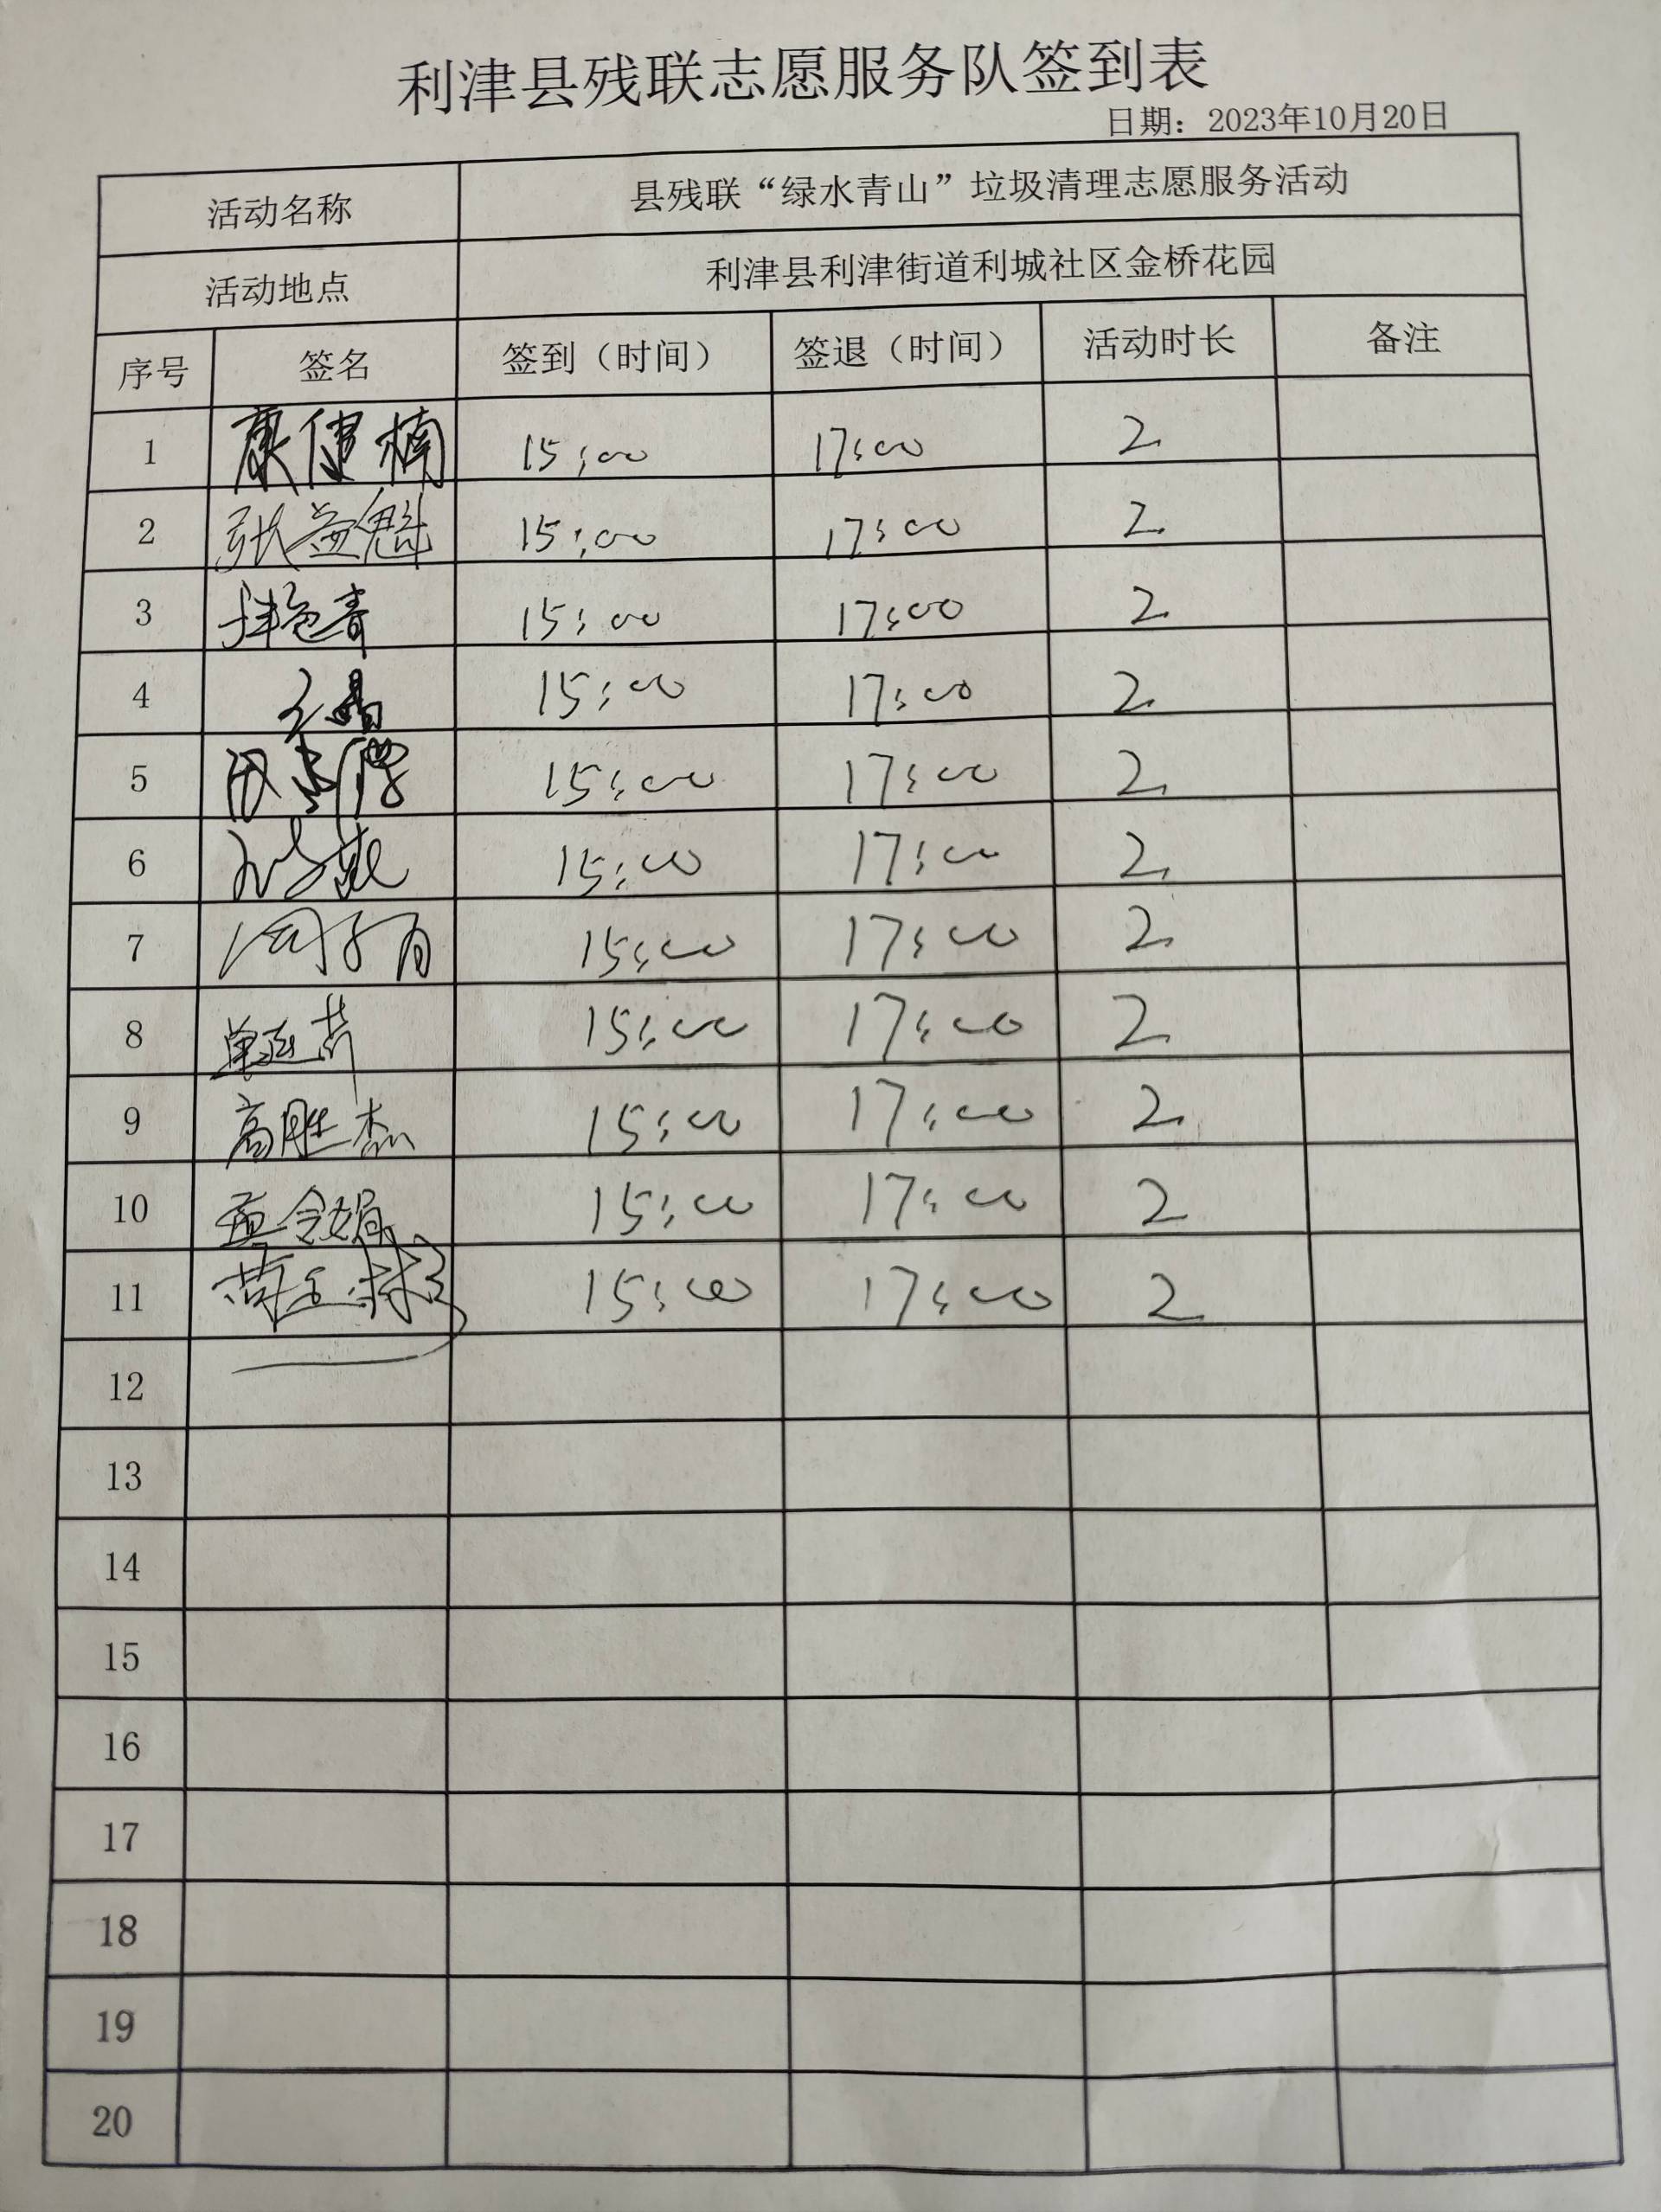 利津县残联志愿服务队签到表
日期：2023年10月20日
活动名称 县残联“绿水青山”垃圾清理志愿服务活动
活动地点 利津县利津街道利城社区金桥花园
序号 签名 签到（时间） 签退（时间） 活动时长 备注
1 康健楠 15:00 17:00 2
2 张益魁 15:00 17:00 2
3 15:00 17:00 2
4 王晶 15:00 17:00 2
5 15:00 17:00 2
6 15:00 17:00 2
7 15:00 17:00 2
8 15:00 17:00 2
9 高胜杰 15:00 17:00 2
10 孟令娟 15:00 17:00 2
11 15:00 17:00 2
12
13
14
15
16
17
18
19
20